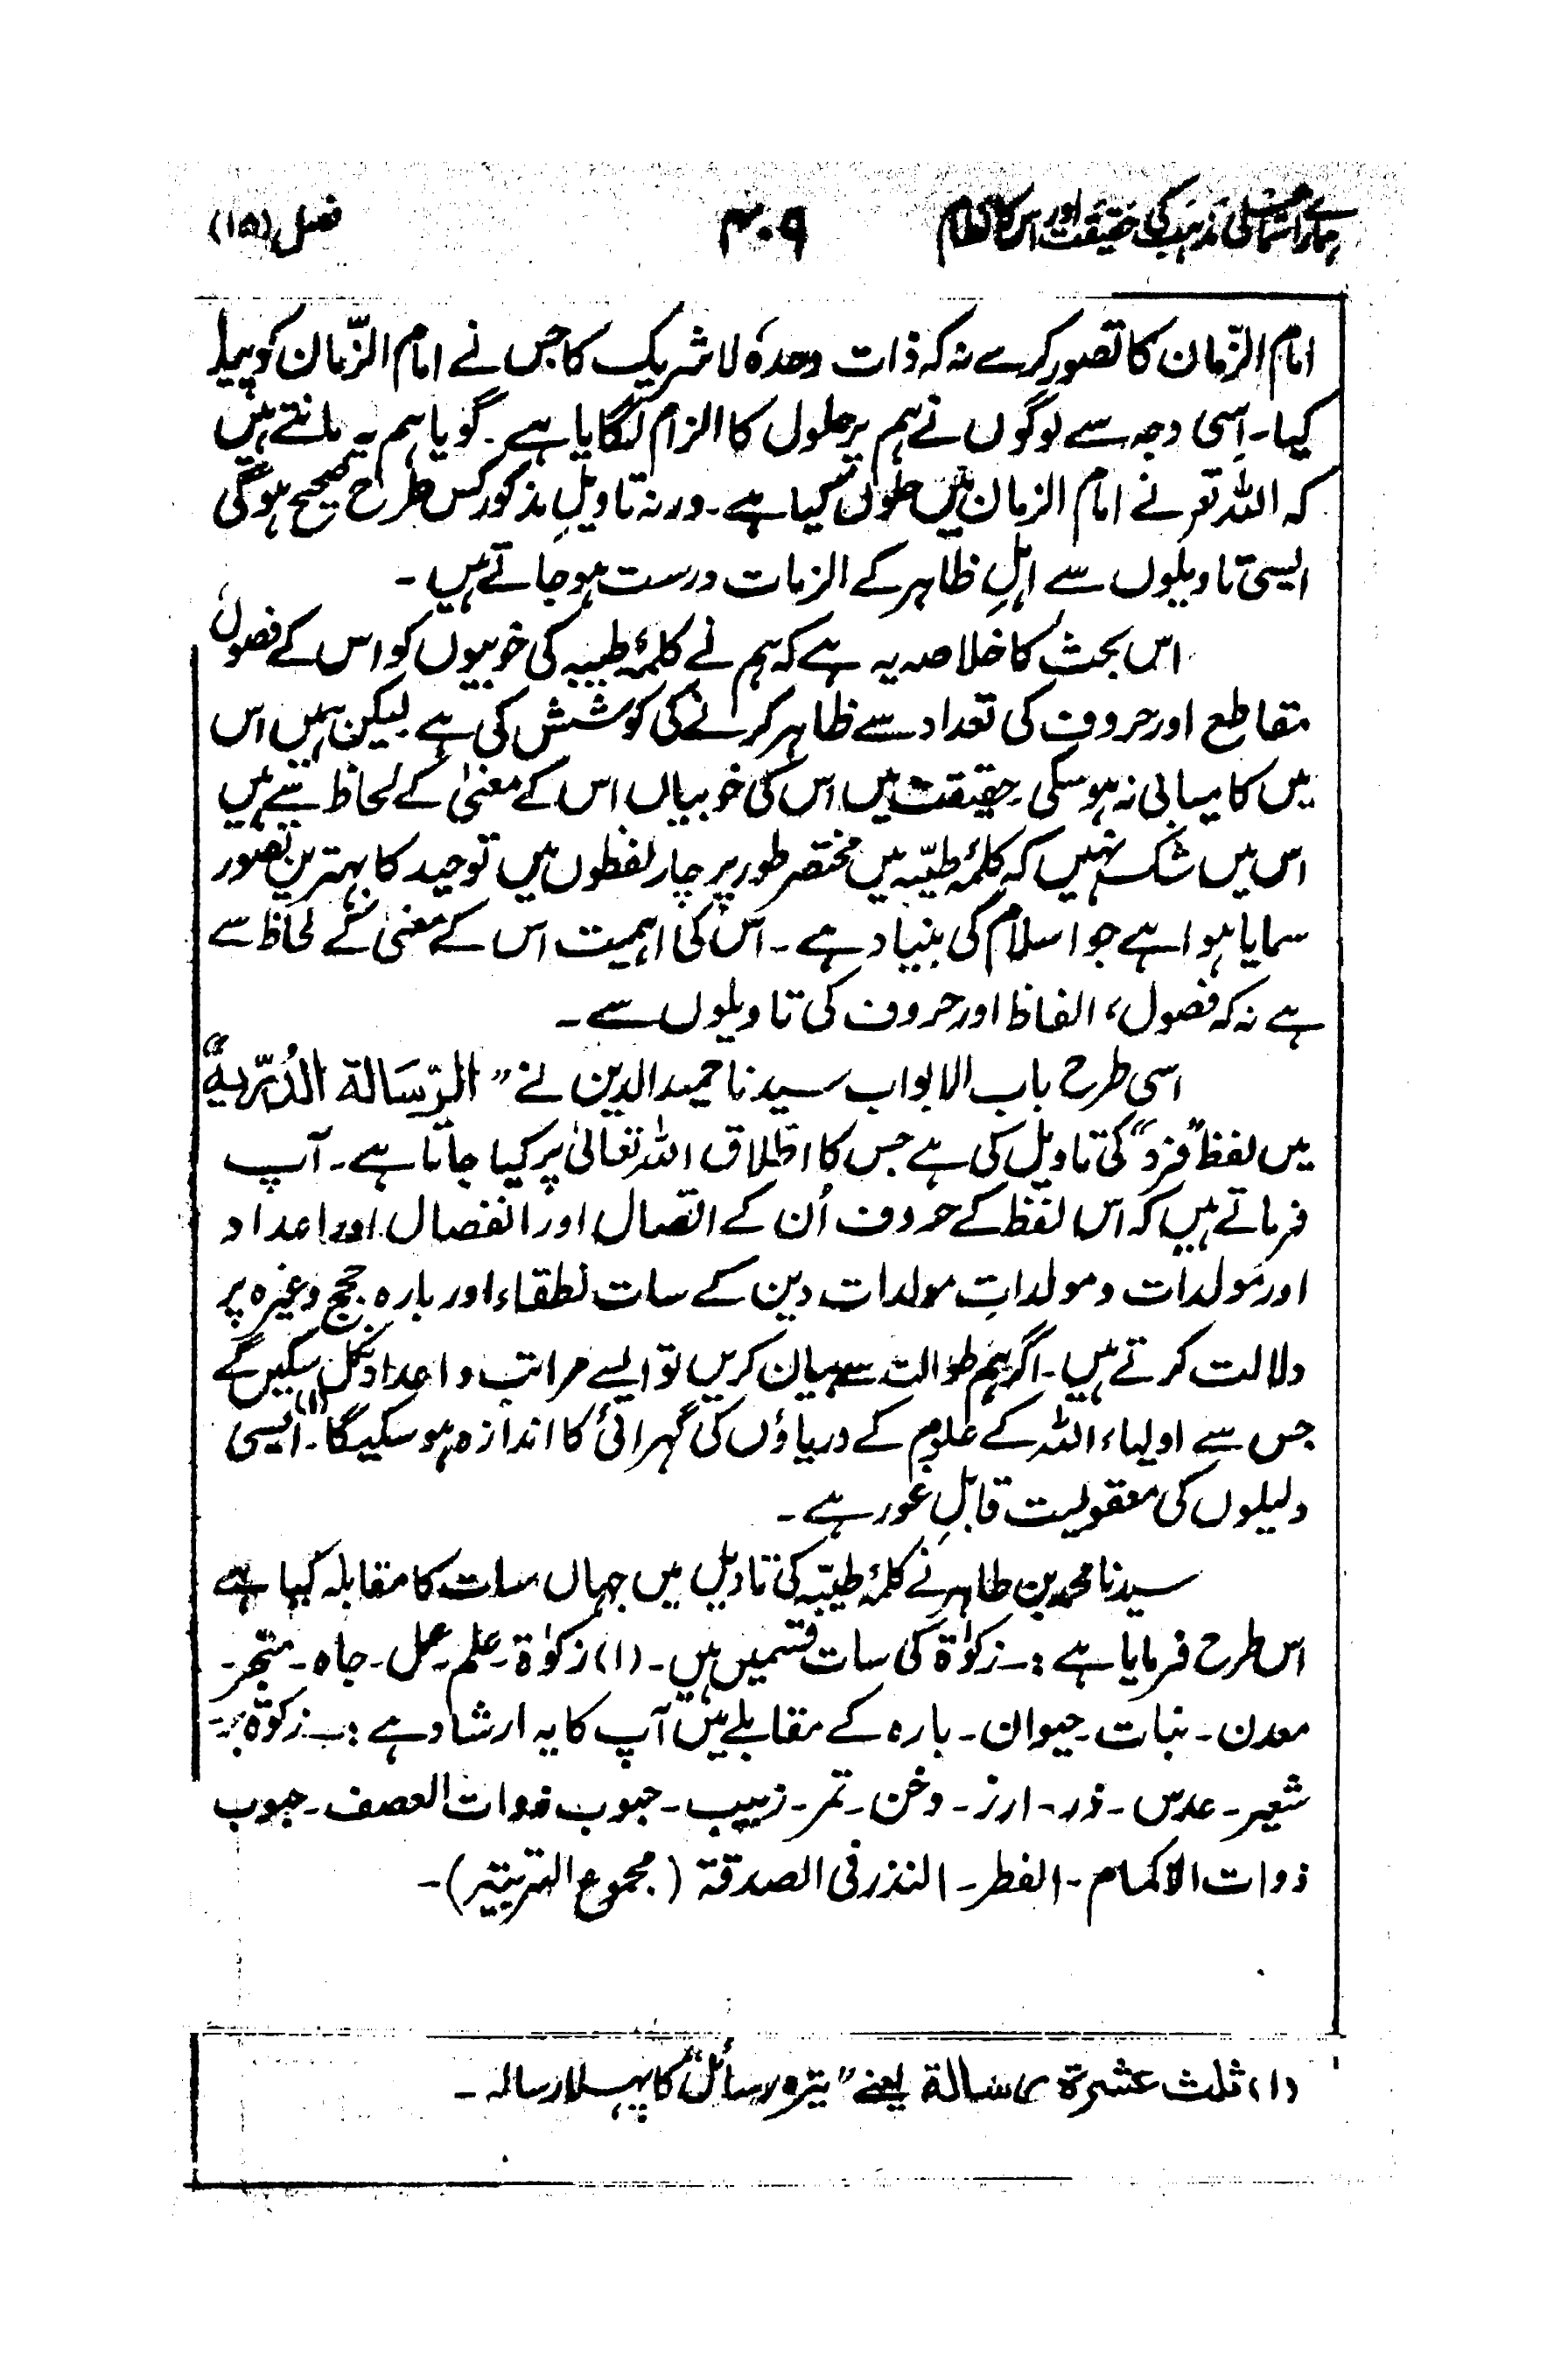 ہمارے اسماعیلی مذہب کی حقیقت اور اس کا نظام ۴۰۹ فصل (۱۵)
امام الزّمان کا تصور کرے نہ کہ ذات وحدہٗ لا شریک کا جس نے امام الزّمان کو پیدا
کیا۔ اِسی وجہ سے لوگوں نے ہم پر حلول کا الزام لگایا ہے۔ گویا ہم یہ مانتے ہیں
کہ اللہ تعہ نے امام الزمان میں حلول کیا ہے۔ ورنہ تاویلِ مذکور کس طرح صحیح ہوگی
ایسی تاویلوں سے اہلِ ظاہر کے الزمات درست ہو جاتے ہیں۔
اس بحث کا خلاصہ یہ ہے کہ ہم نے کلمۂ طیبہ کی خوبیوں کو اس کے فصول،
مقاطع اور حروف کی تعداد سے ظاہر کرنے کی کوشش کی ہے لیکن ہمیں اس
میں کامیابی نہ ہو سکی۔ حقیقت میں اس کی خوبیاں اس کے معنیٰ کے لحاظ سے ہیں
اس میں شک نہیں کہ کلمۂ طیّبہ میں مختصر طور پر چار لفظوں میں توحید کا بہترین تصور
سمایا ہوا ہے جو اسلام کی بنیاد ہے۔ اس کی اہمیت اس کے معنیٰ کے لحاظ سے
ہے نہ کہ فصول، الفاظ اور حروف کی تاویلوں سے۔
اسی طرح باب الابواب سیدنا حمید الدین نے ”الرّسَالة الدُرّیةَ“
میں لفظ ”فرد“ کی تاویل کی ہے جس کا اطلاق اللہ تعالیٰ پر کیا جاتا ہے۔ آپ
فرماتے ہیں کہ اس لفظ کے حروف اُن کے اتصال اور انفصال اور اعداد
اور مولدات و مولداتِ مولدات دین کے سات نطقاء اور بارہ حجج وغیرہ پر
دلالت کرتے ہیں۔ اگر ہم طوالت سے بیان کریں تو ایسے مراتب و اعداد نکل سکیں گے
جس سے اولیاء اللہ کے علوم کے دریاؤں کی گہرائی کا اندازہ ہو سکیگا۔(۱) ایسی
دلیلوں کی معقولیت قابلِ غور ہے۔
سیدنا محمد بن طاہر نے کلمۂ طیّبہ کی تاویل میں جہاں سات کا مقابلہ کیا ہے
اس طرح فرمایا ہے :۔ زکوٰۃ کی سات قسمیں ہیں۔ (۱) زکوٰۃ۔ علم۔ عمل۔ جاہ۔ متجر۔
معدن۔ نبات۔ حیوان۔ بارہ کے مقابلے میں آپ کا یہ ارشاد ہے :۔ زکوٰۃ بر۔
شعیر۔ عدس۔ ذرہ۔ ارز۔ دخن۔ تمر۔ زبیب۔ حبوب ذوات العصف۔ حبوب
ذوات الاکمام۔ الفطر۔ النذر فی الصدقۃ (مجموع التربیتیر)۔
(۱) ثلث عشرۃ رسالة یعنے ”تیرہ رسائل“ کا پہلا رسالہ۔